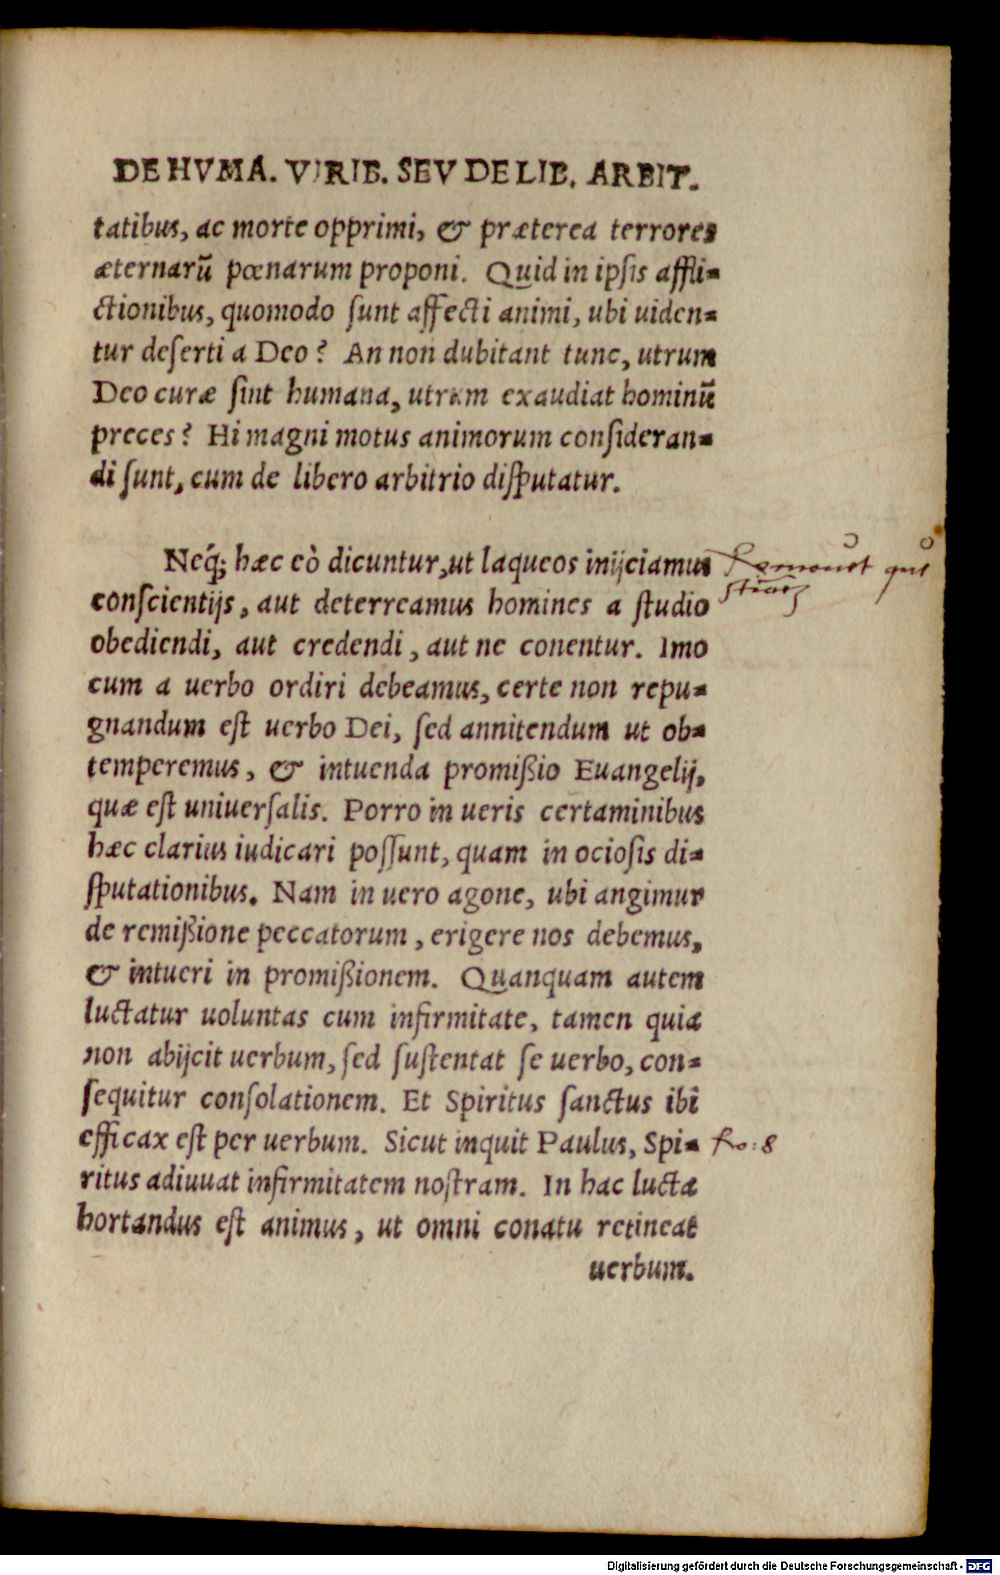 DE HVMA. VIRIB. SEV DE LIB. ARBIT.
tatibus, ac morte opprimi, & præterea terrores
æternarũ pœnarum proponi. Quid in ipsis affli-
ctionibus, quomodo sunt affecti animi, ubi uiden-
tur deserti a Deo? An non dubitant tunc, utrum
Deo curæ sint humana, utrum exaudiat hominũ
preces? Hi magni motus animorum consideran-
di sunt, cum de libero arbitrio disputatur.
Neq́; hæc eò dicuntur, ut laqueos inijciamus
conscientijs, aut deterreamus homines a studio
obediendi, aut credendi, aut ne conentur. Imo
cum a uerbo ordiri debeamus, certe non repu-
gnandum est uerbo Dei, sed annitendum ut ob-
temperemus, & intuenda promißio Euangelij,
quæ est uniuersalis. Porro in ueris certaminibus
hæc clarius iudicari possunt, quam in ociosis di-
sputationibus. Nam in uero agone, ubi angimur
de remißione peccatorum, erigere nos debemus,
& intueri in promißionem. Quanquam autem
luctatur uoluntas cum infirmitate, tamen quia
non abijcit uerbum, sed sustentat se uerbo, con-
sequitur consolationem. Et Spiritus sanctus ibi
efficax est per uerbum. Sicut inquit Paulus, Spi-
Ro: 8
ritus adiuuat infirmitatem nostram. In hac lucta
hortandus est animus, ut omni conatu retineat
uerbum.
Digitalisierung gefördert durch die Deutsche Forschungsgemeinschaft - DFG